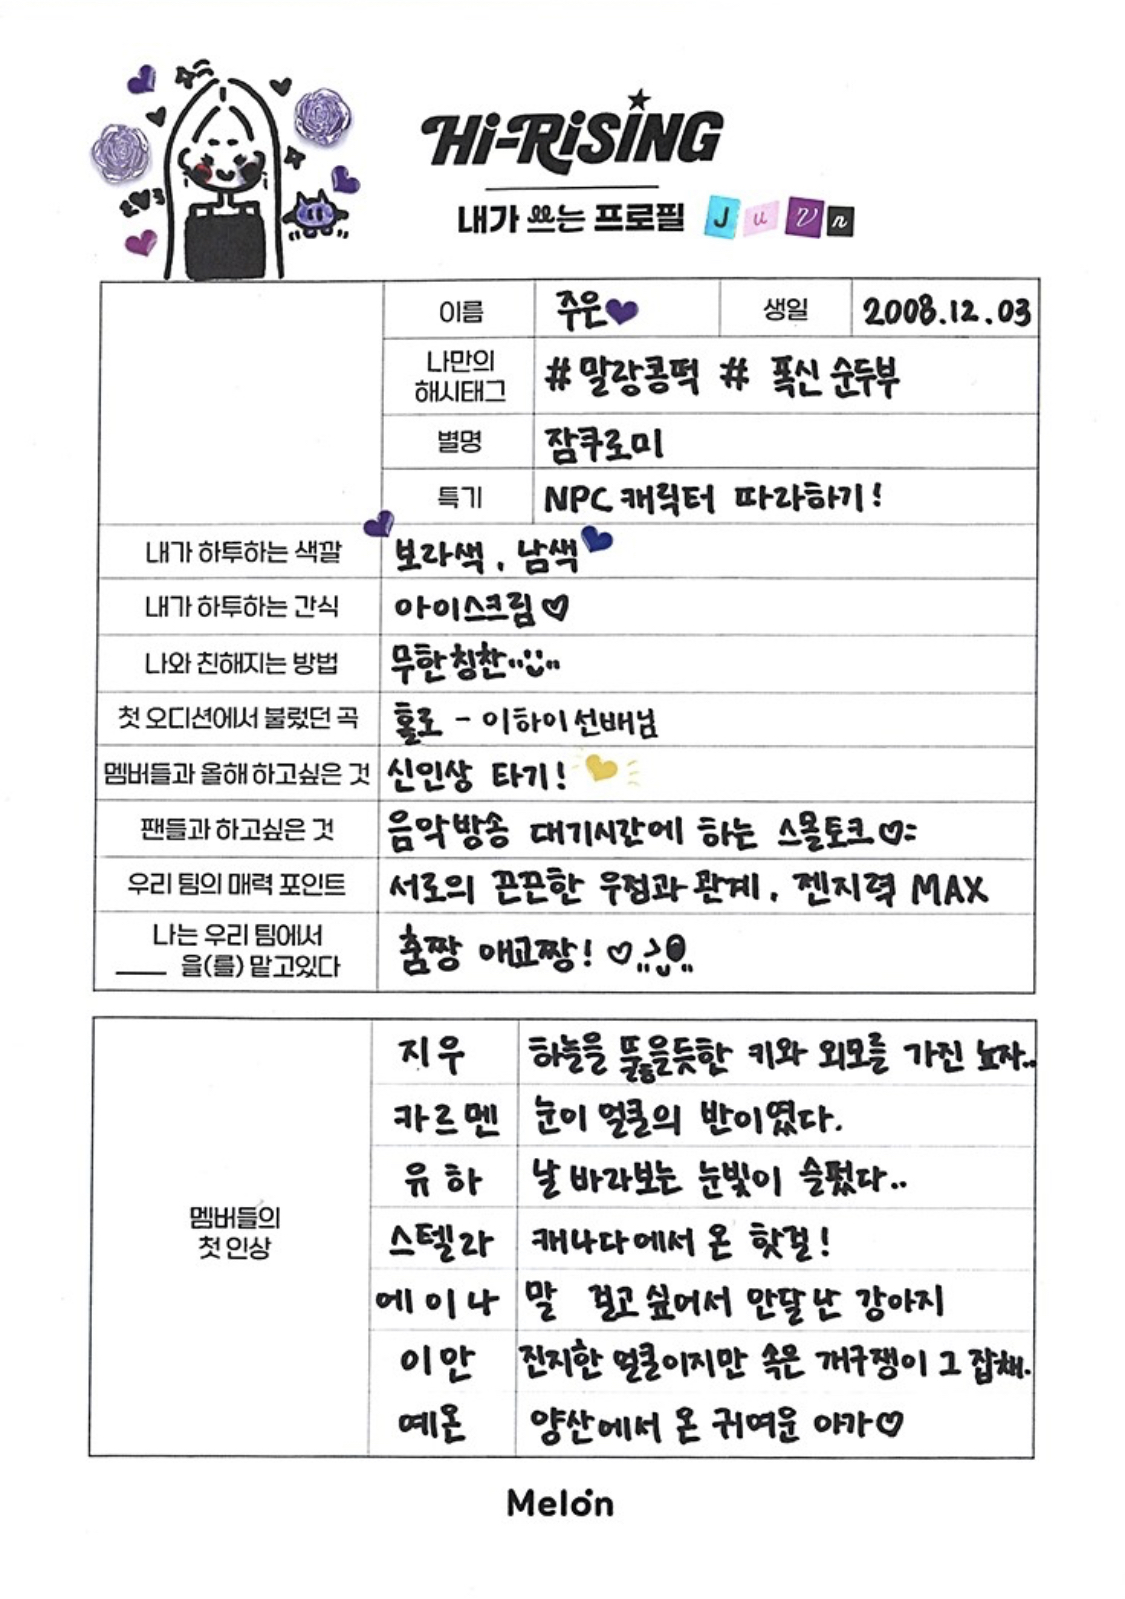 Hi-RiSiNG
내가 쓰는 프로필 Juun
이름 주운 생일 2008.12.03
나만의
해시태그
#말랑콩떡 # 폭신 순두부
별명 잠쿠로미
특기 NPC 캐릭터 따라하기!
내가 하투하는 색깔 보라색, 남색
내가 하투하는 간식 아이스크림♡
나와 친해지는 방법 무한칭찬
첫 오디션에서 불렀던 곡 홀로 - 이하이선배님
멤버들과 올해 하고싶은 것 신인상 타기!
팬들과 하고싶은 것 음악방송 대기시간에 하는 스몰토크♡
우리 팀의 매력 포인트 서로의 끈끈한 우정과 관계, 젠지력 MAX
나는 우리 팀에서
___ 을(를) 맡고있다
춤짱 애교짱! ♡
멤버들의
첫 인상
지우 하늘을 뚫을듯한 키와 외모를 가진 뇨자..
카르멘 눈이 얼굴의 반이였다.
유하 날 바라보는 눈빛이 슬펐다..
스텔라 캐나다에서 온 핫걸!
에이나 말 걸고싶어서 안달난 강아지
이안 진지한 얼굴이지만 속은 개구쟁이 그 잡채.
예온 양산에서 온 귀여운 아가♡
Melon